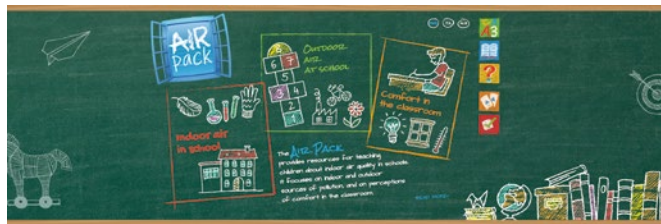 AIR
pack
8
6 7
5
3 4
2
1
OUTDOOR
AIR
AT SCHOOL
Comfort in
the classroom
Indoor air
in school
The AIR PACK
provides resources for teaching
children about indoor air quality in schools.
It focuses on indoor and outdoor
sources of pollution, and on perceptions
of comfort in the classroom.
A3
?